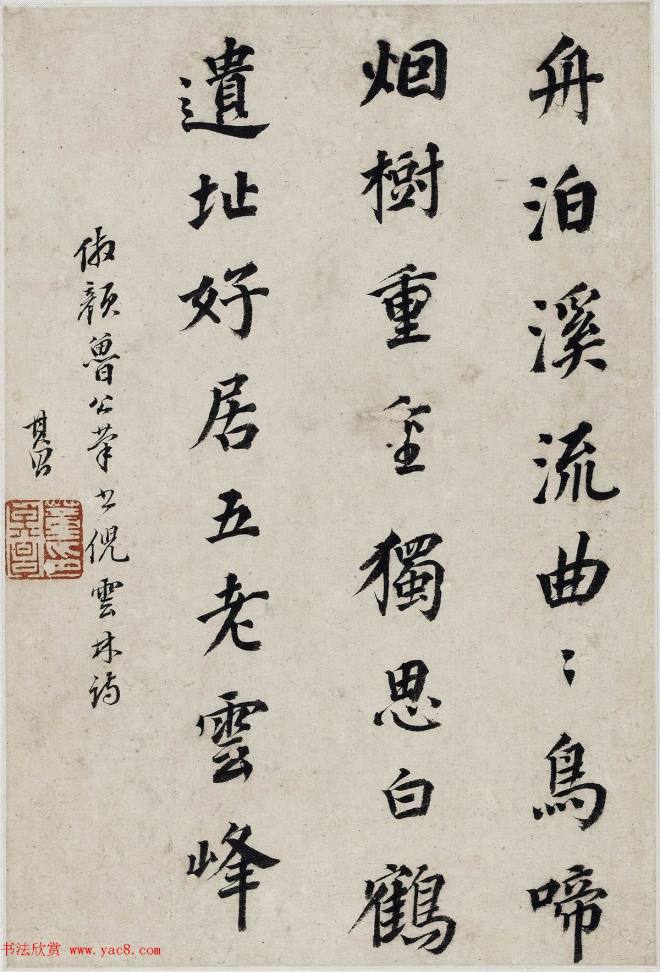 舟泊溪流曲〻鳥啼
烟樹重重獨思白鶴
遺址好居五老雲峰
倣顏魯公筆書倪雲林詩
其昌
书法欣赏 www.yac8.com